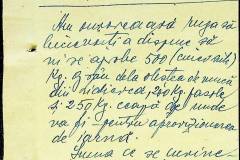 Am onoarea a vă ruga să
binevoiți a dispune să
ni se aprobe 500 (cincisute)
Kg. grâu de la
din 250 Kg. fasole
și 250 Kg. ceapă de unde
va fi pentru aprovizionarea
de iarnă.
Suma ce se cuvine